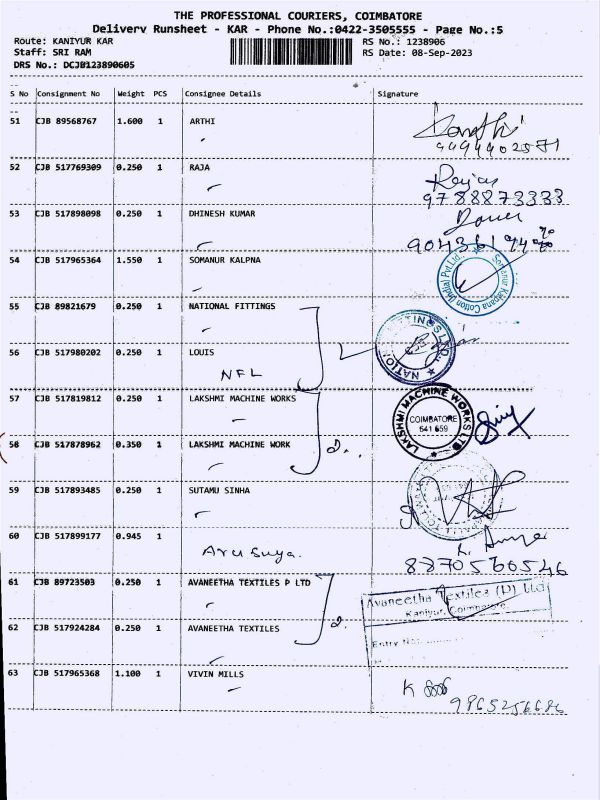 THE PROFESSIONAL COURIERS, COIMBATORE
Delivery Runsheet - KAR - Phone No.:0422-3505555 - Page No.:5
Route: KANIYUR KAR
RS No.: 1238906
Staff: SRI RAM
RS Date: 08-Sep-2023
DRS No.: DCJB123890605
S No Consignment No Weight PCS Consignee Details Signature
51 CJB 89568767 1.600 1 ARTHI
52 CJB 517769309 0.250 1 RAJA
9788873333
53 CJB 517898098 0.250 1 DHINESH KUMAR
54 CJB 517965364 1.550 1 SOMANUR KALPNA
Somanur Kalpana Cotton (India) Pvt Ltd.,
55 CJB 89821679 0.250 1 NATIONAL FITTINGS
56 CJB 517980202 0.250 1 LOUIS
NFL
57 CJB 517819812 0.250 1 LAKSHMI MACHINE WORKS
LAKSHMI MACHINE WORKS LTD
COIMBATORE
641 659
58 CJB 517878962 0.350 1 LAKSHMI MACHINE WORK
2.
59 CJB 517893485 0.250 1 SUTAMU SINHA
60 CJB 517899177 0.945 1
Arusuya.
8870560546
61 CJB 89723503 0.250 1 AVANEETHA TEXTILES P LTD
Avaneetha Textiles (P) Ltd
Kaniyur, Coimbatore.
62 CJB 517924284 0.250 1 AVANEETHA TEXTILES
2.
Entry No:
63 CJB 517965368 1.100 1 VIVIN MILLS
9865256686